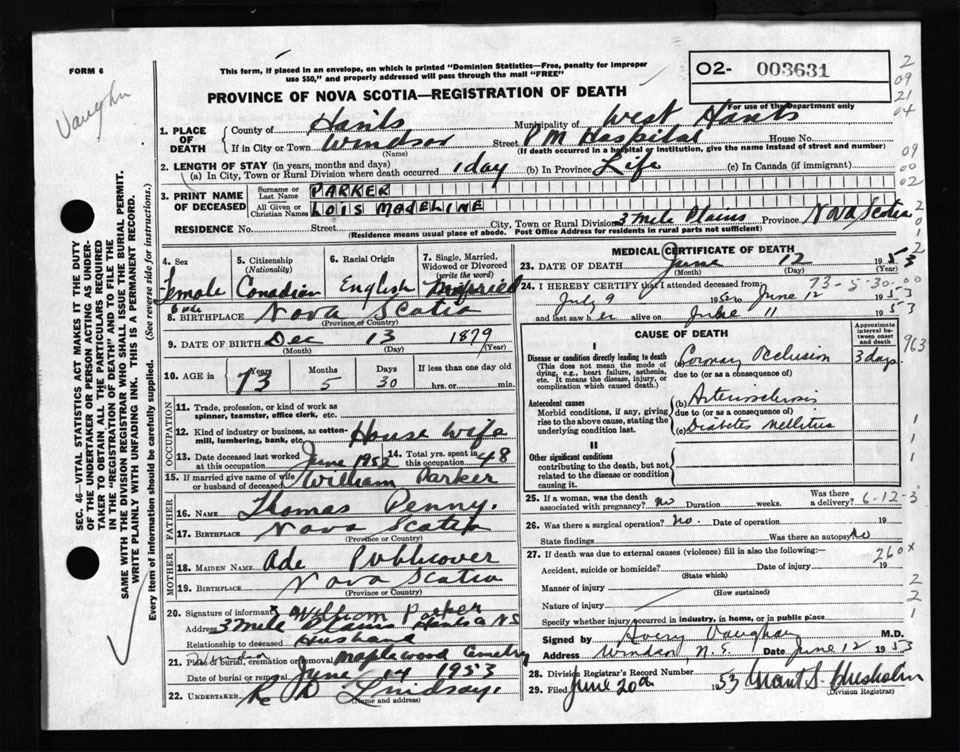 FORM 6
This form, if placed in an envelope, on which is printed "Dominion Statistics—Free, penalty for improper
use $50," and properly addressed will pass through the mail "FREE"
O2- 003631
For use of the Department only
2
09
21
04
09
00
02
2
0
1
2
Vaughn
PROVINCE OF NOVA SCOTIA—REGISTRATION OF DEATH
1. PLACE OF DEATH
County of Hants Municipality of West Hants
If in City or Town Windsor Street P M Hospital House No.
(Name) (If death occurred in a hospital or institution, give the name instead of street and number)
2. LENGTH OF STAY (in years, months and days)
(a) In City, Town or Rural Division where death occurred 1 day (b) In Province Life (c) In Canada (if immigrant)
3. PRINT NAME OF DECEASED
Surname or Last Name PARKER
All Given or Christian Names LOIS MADELINE
RESIDENCE No. Street City, Town or Rural Division 3 Mile Plains Province Nova Scotia
(Residence means usual place of abode. Post Office Address for residents in rural parts not sufficient)
SEC. 46—VITAL STATISTICS ACT MAKES IT THE DUTY
OF THE UNDERTAKER OR PERSON ACTING AS UNDER-
TAKER TO OBTAIN ALL THE PARTICULARS REQUIRED
IN THE "REGISTRATION OF DEATH" AND TO FILE THE
SAME WITH THE DIVISION REGISTRAR WHO SHALL ISSUE THE BURIAL PERMIT.
WRITE PLAINLY WITH UNFADING INK. THIS IS A PERMANENT RECORD.
Every item of information should be carefully supplied. (See reverse side for instructions.)
4. Sex Female
5. Citizenship (Nationality) Canadian
6. Racial Origin English
7. Single, Married, Widowed or Divorced (write the word) Married
8. BIRTHPLACE Nova Scotia
(Province or Country)
9. DATE OF BIRTH Dec 13 1879
(Month) (Day) (Year)
10. AGE in Years 73 Months 5 Days 30 If less than one day old hrs. or min.
OCCUPATION
11. Trade, profession, or kind of work as
spinner, teamster, office clerk, etc.
12. Kind of industry or business, as cotton-
mill, lumbering, bank, etc. House Wife
13. Date deceased last worked at this occupation June 1952 14. Total yrs. spent in this occupation 48
15. If married give name of wife or husband of deceased William Parker
FATHER
16. Name Thomas Penny.
17. Birthplace Nova Scotia
(Province or Country)
MOTHER
18. MAIDEN NAME Ada Publicover
19. BIRTHPLACE Nova Scotia
(Province or Country)
20. Signature of informant x William Parker
Address 3 Mile Plains Hants Co N S
Relationship to deceased Husband
21. Place of burial, cremation or removal Windsor Maplewood Cemetry
Date of burial or removal June 14 1953
22. UNDERTAKER Lindsay.
(Name and address)
MEDICAL CERTIFICATE OF DEATH
23. DATE OF DEATH June 12 1953
(Month) (Day) (Year)
24. I HEREBY CERTIFY that I attended deceased from 73-5-30-00
July 9 1952 to June 12 1953
and last saw her alive on June 11 1953
CAUSE OF DEATH
Approximate interval between onset and death
I
Disease or condition directly leading to death
(This does not mean the mode of
dying, e.g., heart failure, asthenia,
etc. It means the disease, injury, or
complication which caused death.)
(a) Coronary Occlusion 3 days. 963
due to (or as a consequence of)
Antecedent causes
Morbid conditions, if any, giving
rise to the above cause, stating the
underlying condition last.
(b) Arteriosclerosis
due to (or as a consequence of)
(c) Diabetes Mellitus
II
Other significant conditions
contributing to the death, but not
related to the disease or condition
causing it.
1
1
1
25. If a woman, was the death associated with pregnancy? no Duration weeks. Was there a delivery? 6-12-3
26. Was there a surgical operation? no. Date of operation 19
State findings Was there an autopsy No
27. If death was due to external causes (violence) fill in also the following:— 260x
Accident, suicide or homicide? Date of injury 19
(State which)
Manner of injury 2
(How sustained)
Nature of injury 2
Specify whether injury occurred in industry, in home, or in public place 1
Signed by Avery Vaughan M.D.
Address Windsor, N.S. Date June 12 1953
28. Division Registrar's Record Number
29. Filed June 20th 1953 Grant S. Chisholm
(Division Registrar)